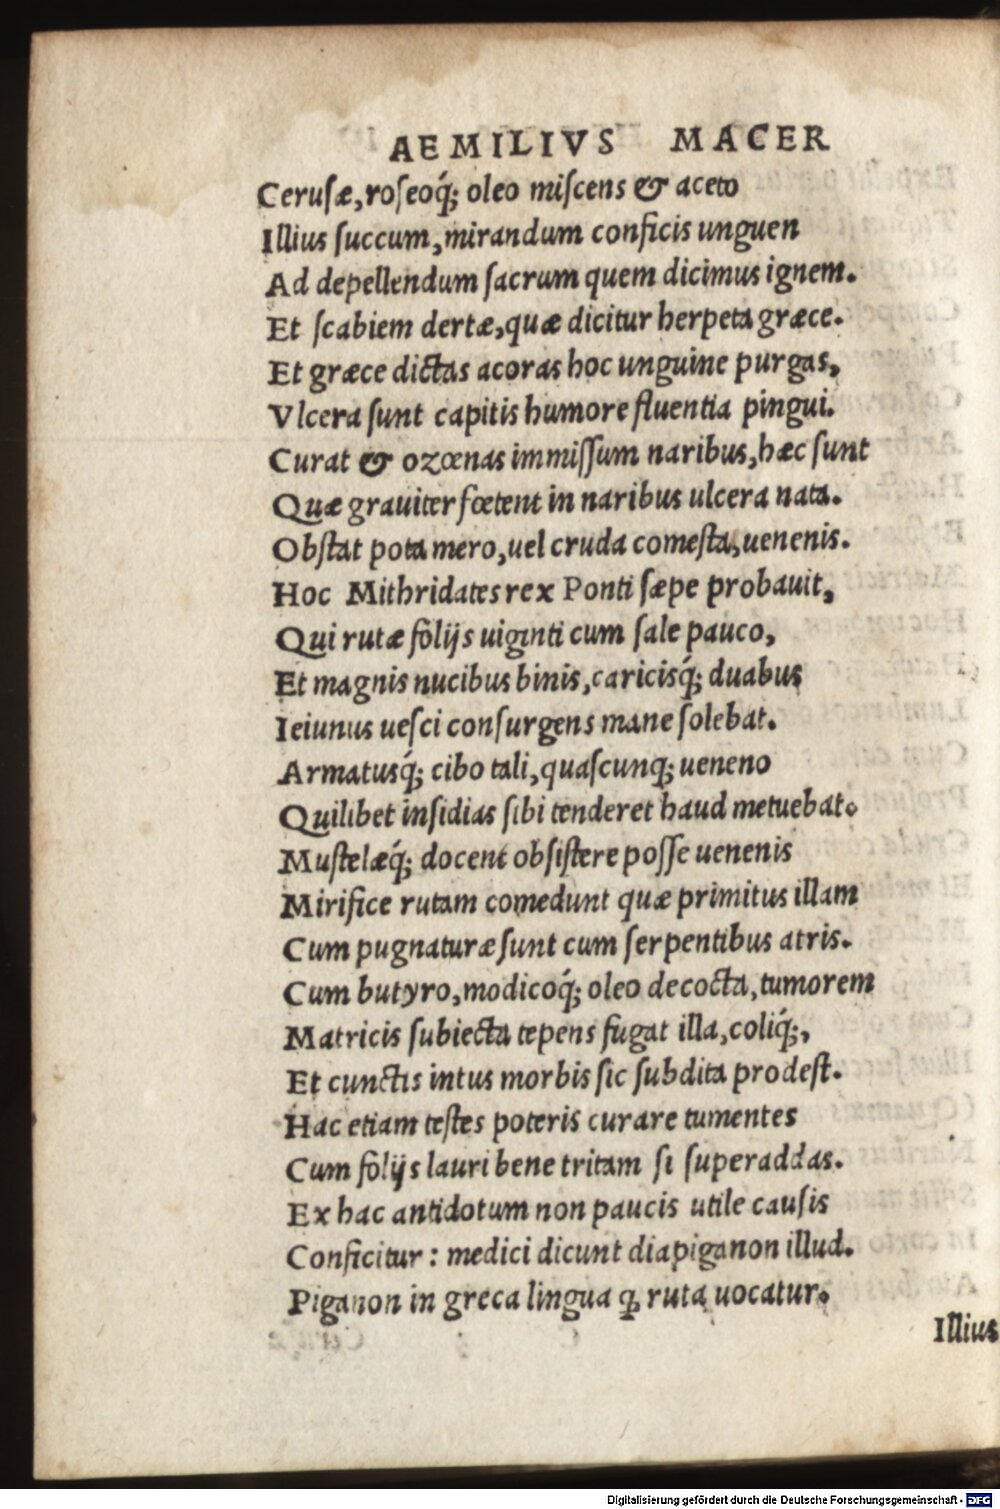 AEMILIVS MACER
Ceruſæ, roſeoq́; oleo miſcens & aceto
Illius ſuccum, mirandum conficis unguen
Ad depellendum ſacrum quem dicimus ignem.
Et ſcabiem dertæ, quæ dicitur herpeta græce.
Et græce dictas acoras hoc unguine purgas,
Vlcera ſunt capitis humore fluentia pingui.
Curat & ozœnas immiſſum naribus, hæc ſunt
Quæ grauiter fœtent in naribus ulcera nata.
Obſtat pota mero, uel cruda comeſta, uenenis.
Hoc Mithridates rex Ponti ſæpe probauit,
Qui rutæ folijs uiginti cum ſale pauco,
Et magnis nucibus binis, caricisq́; duabus
Ieiunus ueſci conſurgens mane ſolebat.
Armatusq́; cibo tali, quaſcunq; ueneno
Quilibet inſidias ſibi tenderet haud metuebat.
Muſtelæq́; docent obſiſtere poſſe uenenis
Mirifice rutam comedunt quæ primitus illam
Cum pugnaturæ ſunt cum ſerpentibus atris.
Cum butyro, modicoq́; oleo decocta, tumorem
Matricis ſubiecta tepens fugat illa, coliq́;,
Et cunctis intus morbis ſic ſubdita prodeſt.
Hac etiam teſtes poteris curare tumentes
Cum folijs lauri bene tritam ſi ſuperaddas.
Ex hac antidotum non paucis utile cauſis
Conficitur : medici dicunt diapiganon illud.
Piganon in greca lingua ꝗ ruta uocatur.
Illius
Digitalisierung gefördert durch die Deutsche Forschungsgemeinschaft - DFG